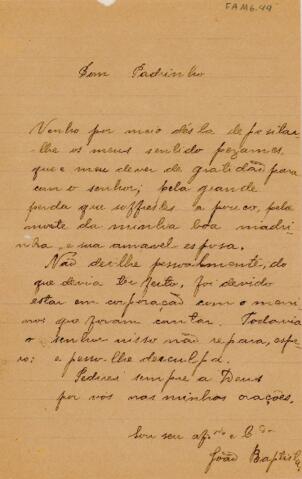 FAM6.49
Bom Padrinho
Venho por meio désta depositar
lhe os meus sentido pezames,
que é meu dever de gratidão para
com o senhor; pela grande
perda que soffrestes a pouco, pela
morte da minha boa madri-
nha, e sua amavel esposa.
Não dei-lhe pessoalmente, do
que devia ter feito, foi devido
estar em corporação com o meni-
nos que foram cantar. Todavia
o senhor nisso não repara, espe-
ro; e peço-lhe desculpa.
Pederei sempre a Deus
por vós nas minhas orações.
Sou seu af.do e C.do
João Baptista